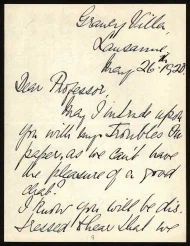 Villa,
Lausanne,
May 26th 1920
Dear Professor,
May I intrude upon
you with my troubles on
paper, as we can't have
the pleasure of a good
chat?
I know you will be dis-
tressed to hear that we